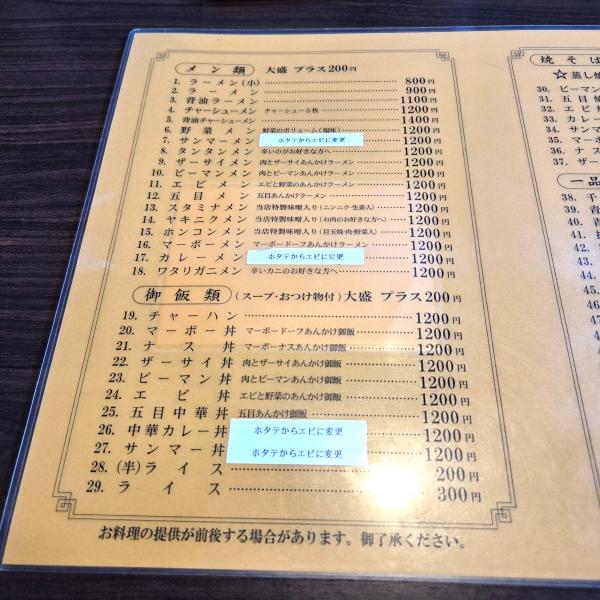 メン類 大盛 プラス200円
1. ラーメン(小) 800円
2. ラーメン 900円
3. 背油ラーメン 1100円
4. チャーシューメン チャーシュー5枚 1200円
5. 背油チャーシューメン 1400円
6. 野菜メン 野菜のボリューム(塩味) 1200円
7. サンマーメン ホタテからエビに変更 1200円
8. タンタンメン 辛いのがお好きな方へ 1200円
9. ザーサイメン 肉とザーサイあんかけラーメン 1200円
10. ピーマンメン 肉とピーマンあんかけラーメン 1200円
11. エビメン エビと野菜のあんかけラーメン 1200円
12. 五目メン 五目あんかけラーメン 1200円
13. スタミナメン 当店特製味噌入り(ニンニク・生姜入) 1200円
14. ヤキニクメン 当店特製味噌入り(お肉のお好きな方へ) 1200円
15. ホンコンメン 当店特製味噌入り(目玉焼・肉・野菜入) 1200円
16. マーボーメン マーボードーフあんかけラーメン 1200円
17. カレーメン ホタテからエビに変更 1200円
18. ワタリガニメン 辛いカニのお好きな方へ 1200円
御飯類 (スープ・おつけ物付) 大盛 プラス200円
19. チャーハン 1200円
20. マーボー丼 マーボードーフあんかけ御飯 1200円
21. ナス丼 マーボーナスあんかけ御飯 1200円
22. ザーサイ丼 肉とザーサイあんかけ御飯 1200円
23. ピーマン丼 肉とピーマンあんかけ御飯 1200円
24. エビ丼 エビと野菜のあんかけ御飯 1200円
25. 五目中華丼 五目あんかけ御飯 1200円
26. 中華カレー丼 ホタテからエビに変更 1200円
27. サンマー丼 ホタテからエビに変更 1200円
28. (半)ライス 200円
29. ライス 300円
お料理の提供が前後する場合があります。御了承ください。
焼そば
☆蒸し焼
30. ピーマン
31. 五目焼
32. エビ
33. カレー
34. サンマー
35. マーボー
36. ナス
37. ザー
一品
38.
39.
40.
41.
42.
43.
44.
45.
46.